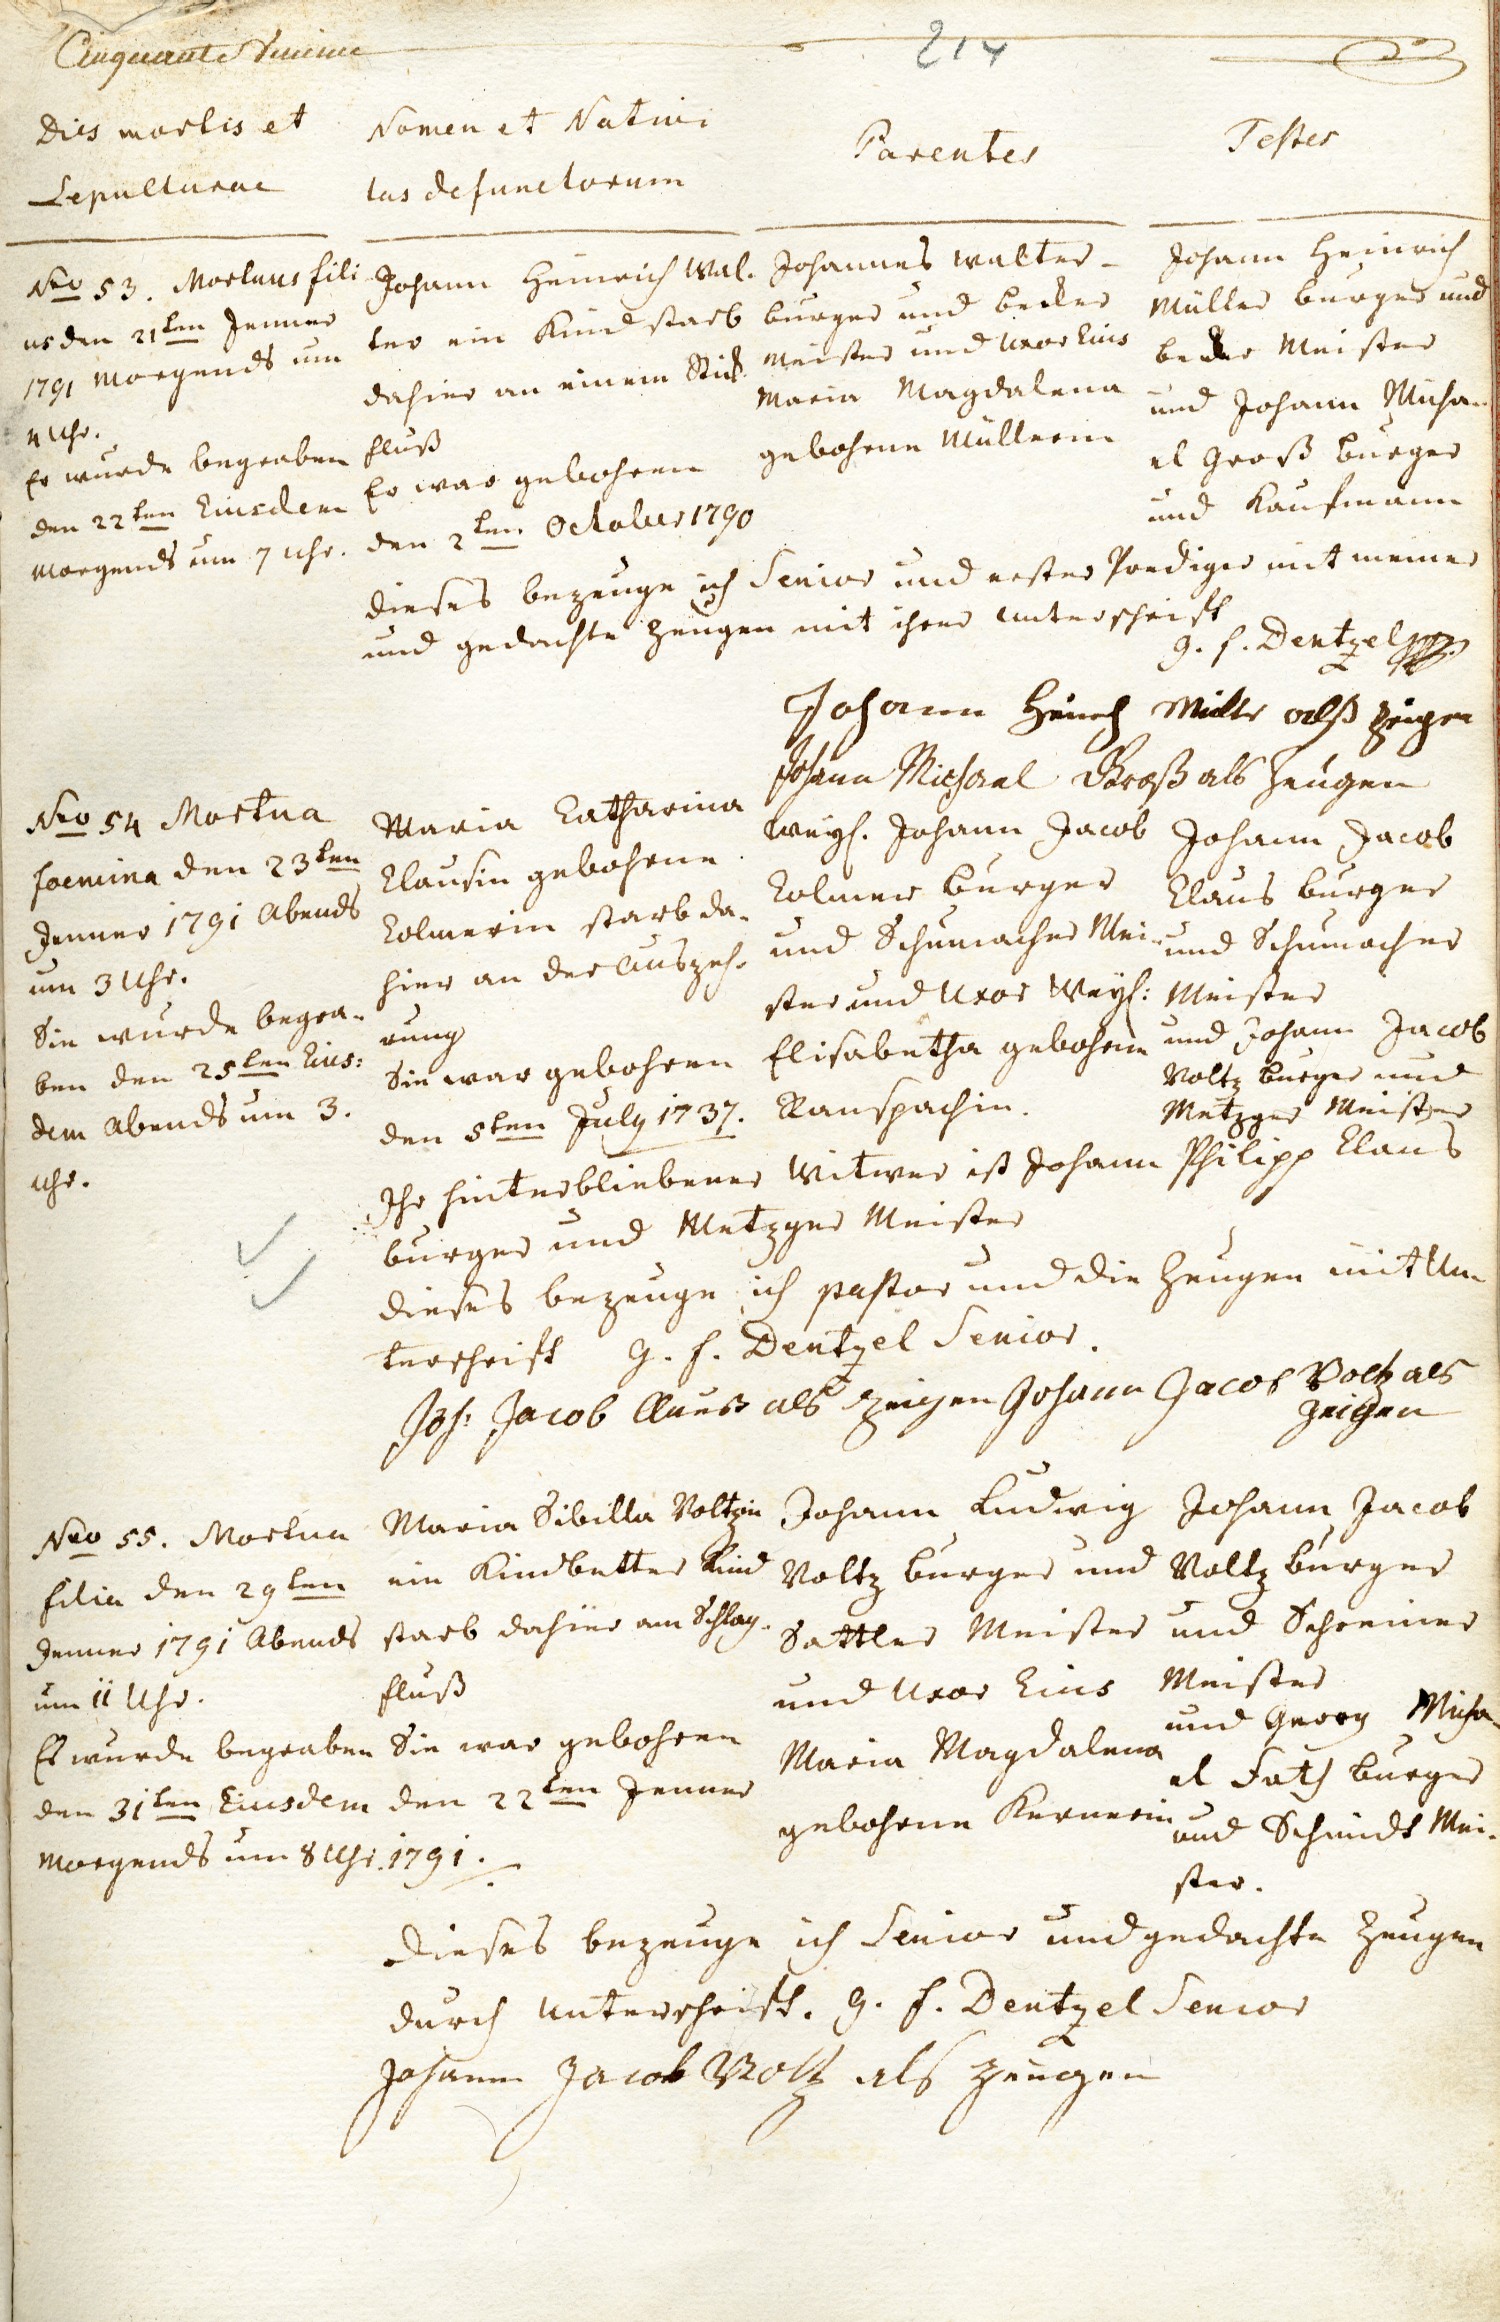 Cinquante Sixieme
214
Dies mortis et
Sepulturae
Nomen et Nativi
tas defunctorum
Parentes
Testes
Nro 53. Mortuus fili
us den 21ten Jenner
1791 Morgends um
4 Uhr.
Er wurde begraben
den 22ten Eiusdem
Morgends um 7 Uhr.
Johann Heinrich Wal-
ter ein Kind starb
dahier an einem Stick-
fluß
Er war gebohren
den 2ten October 1790
Johannes Walter
burger und becker
Meister und Uxor Eius
Maria Magdalena
gebohrne Müllerin
Johann Heinrich
Müller burger und
becker Meister
und Johann Micha-
el Groß burger
und Kaufmann
dieses bezeuge ich Senior und erster Prediger mit meiner
und gedachte Zeugen mit ihrer Unterschrift
G. F. Dentzel
Johann Heinrch Miller alß zeigen
Johann Michael Groß als Zeugen
Nro 54 Mortua
foemina den 23ten
Jenner 1791 Abends
um 3 Uhr.
Sie wurde begra-
ben den 25ten Eius:
dem Abends um 3.
Uhr.
Maria Catharina
Clausin gebohrne
Colmerin starb da-
hier an der Auszeh-
rung
Sie war gebohren
den 5ten July 1737.
Weyl. Johann Jacob
Colmer burger
und Schumacher Mei-
ster und Uxor Weyl:
Elisabetha gebohrne
Ranspachin.
Johann Jacob
Claus burger
und Schumacher
Meister
und Johann Jacob
Voltz burger und
Metzger Meister
Ihr hinterbliebener Witwer ist Johann Philipp Claus
burger und Metzger Meister
dieses bezeuge ich pastor und die Zeugen mit Un-
terschrift G. F. Dentzel Senior.
Joh: Jacob Clauß als zeigen Johann Jacob Voltz als
zeigen
Nro 55. Mortua
filia den 29ten
Jenner 1791 Abends
um 11 Uhr.
Es wurde begraben
den 31ten Eiusdem
Morgends um 8 Uhr.
Maria Sibilla Voltzin
ein Kindbetter Kind
starb dahier am Schlag-
fluß
Sie war gebohren
den 22ten Jenner
1791.
Johann Ludwig
Voltz burger und
Sattler Meister
und Uxor Eius
Maria Magdalena
gebohrne Kernerin
Johann Jacob
Voltz burger
und Schreiner
Meister
und Georg Micha-
el Fath burger
und Schmidt Mei-
ster.
dieses bezeuge ich Senior und gedachte Zeugen
durch Unterschrift. G. F. Dentzel Senior
Johann Jacob Voltz als Zeugen